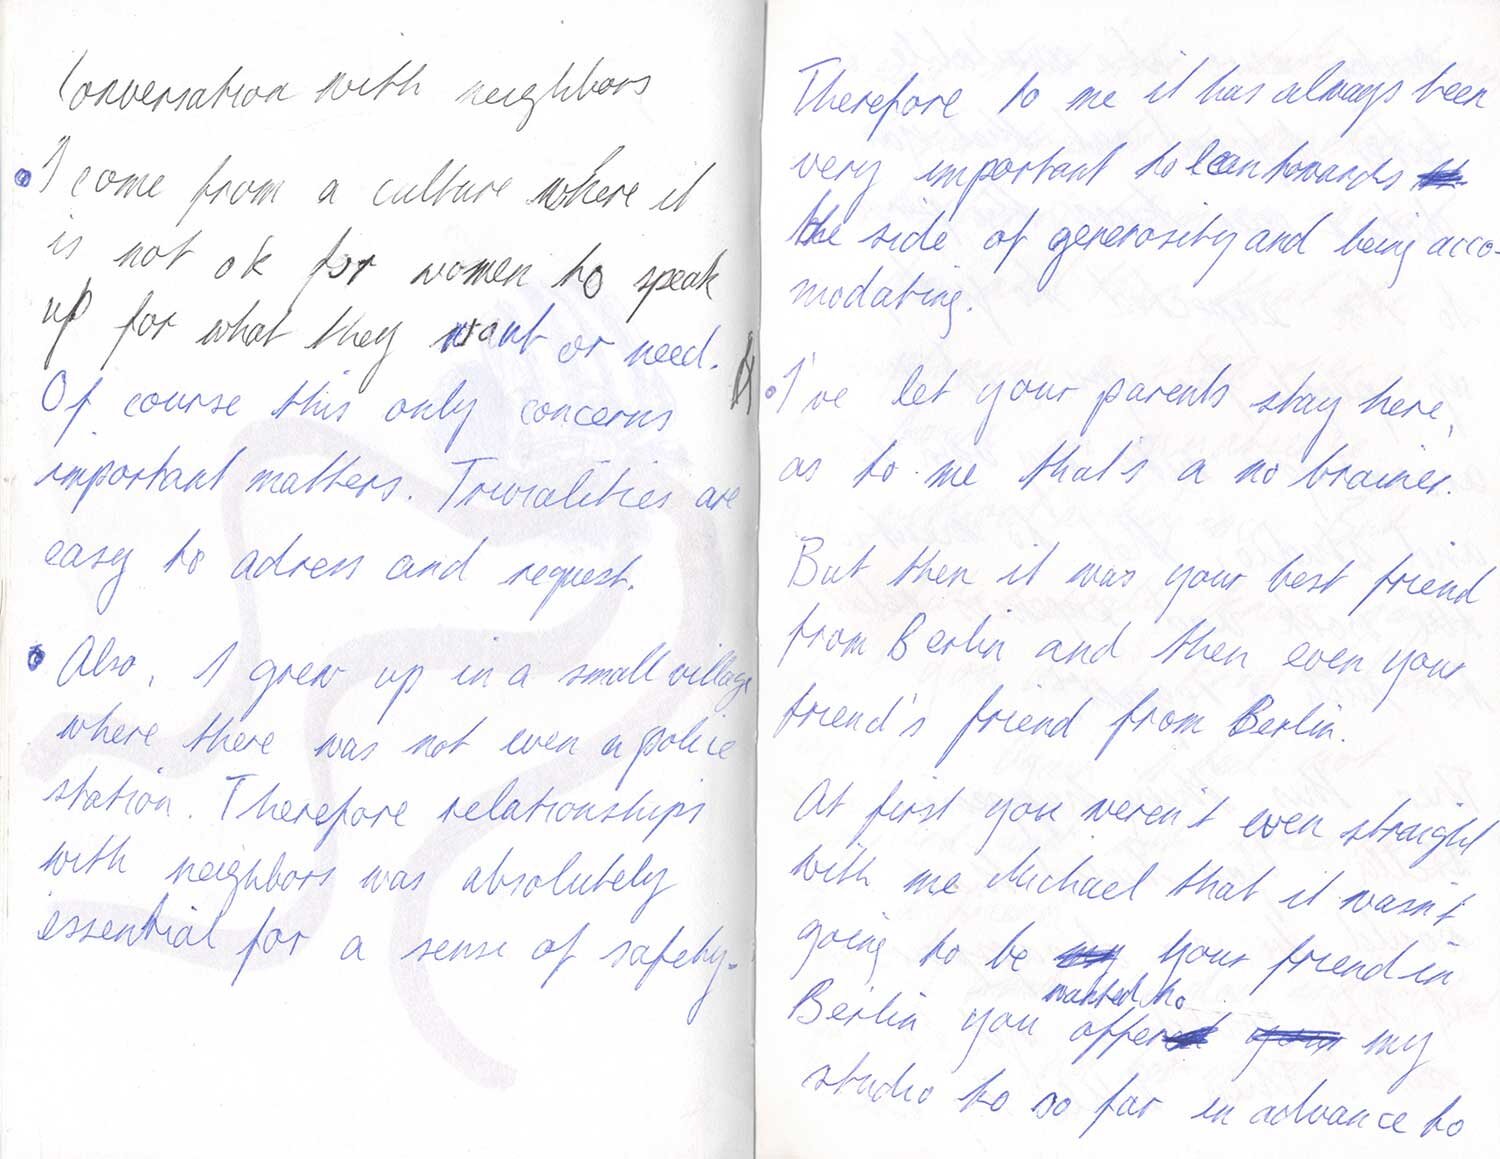 Conversation with neighbors
I come from a culture where it
is not ok for women to speak
up for what they want or need.
Of course this only concerns
important matters. Trivialities are
easy to adress and request.
Also, I grew up in a small village
where there was not even a police
station. Therefore relationships
with neighbors was absolutely
essential for a sense of safety.
Therefore to me it has always been
very important to lean towards
the side of generosity and being acco-
modating.
I've let your parents stay here,
as to me that's a no brainer.
But then it was your best friend
from Berlin and then even your
friend's friend from Berlin.
At first you weren't even straight
with me Michael that it wasn't
going to be your friend in
Berlin you wanted to offer my
studio to so far in advance to